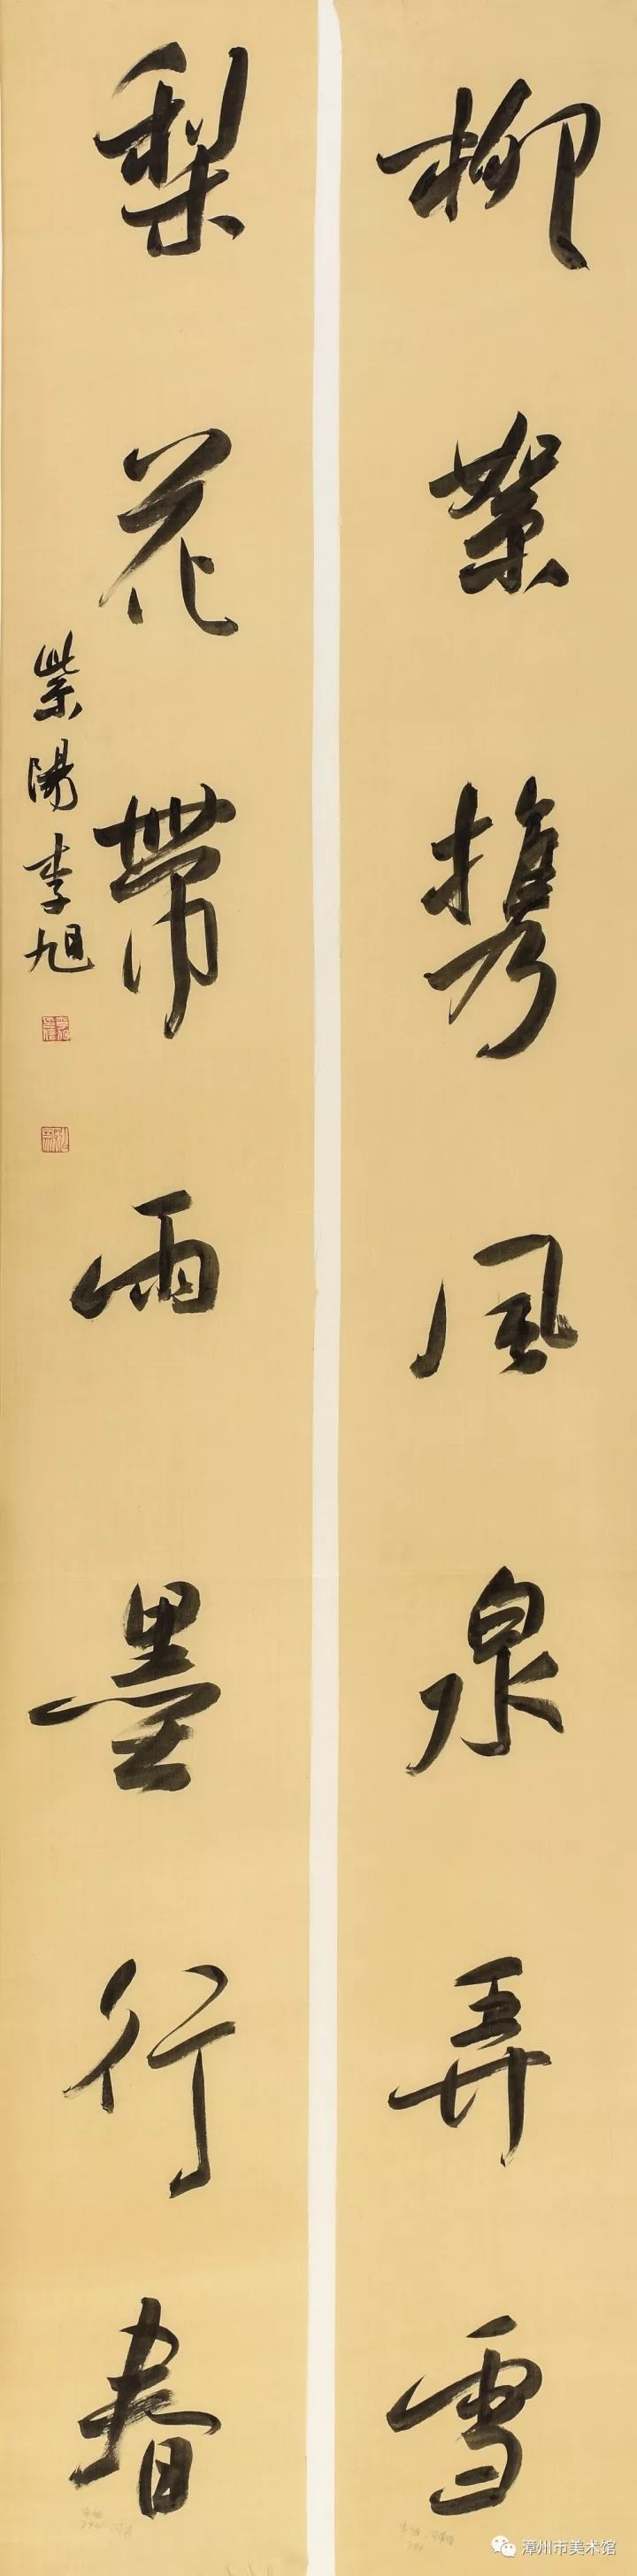 柳絮携风泉弄雪
梨花帶雨墨行春
紫陽李旭
漳州市美术馆